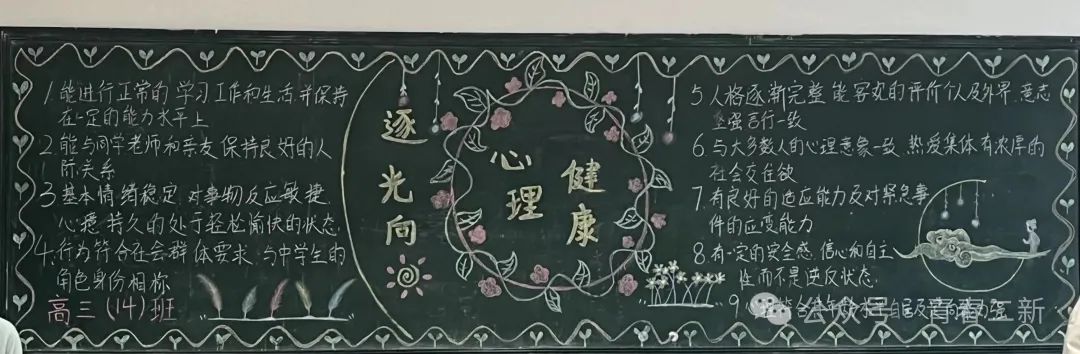 1.能进行正常的学习工作和生活,并保持
在一定的能力水平上
2.能与同学老师和亲友保持良好的人
际关系
3.基本情绪稳定,对事物反应敏捷,
心境持久的处于轻松愉快的状态
4.行为符合社会群体要求,与中学生的
角色身份相称
高三(14)班
逐光向
心理
健康
5.人格逐渐完整,能客观的评价个人及外界,意志
坚强言行一致
6.与大多数人的心理意象一致,热爱集体有浓厚的
社会交往欲
7.有良好的适应能力及对紧急事
件的应变能力
8.有一定的安全感,信心和自主
性而不是逆反状态
9.
公众号